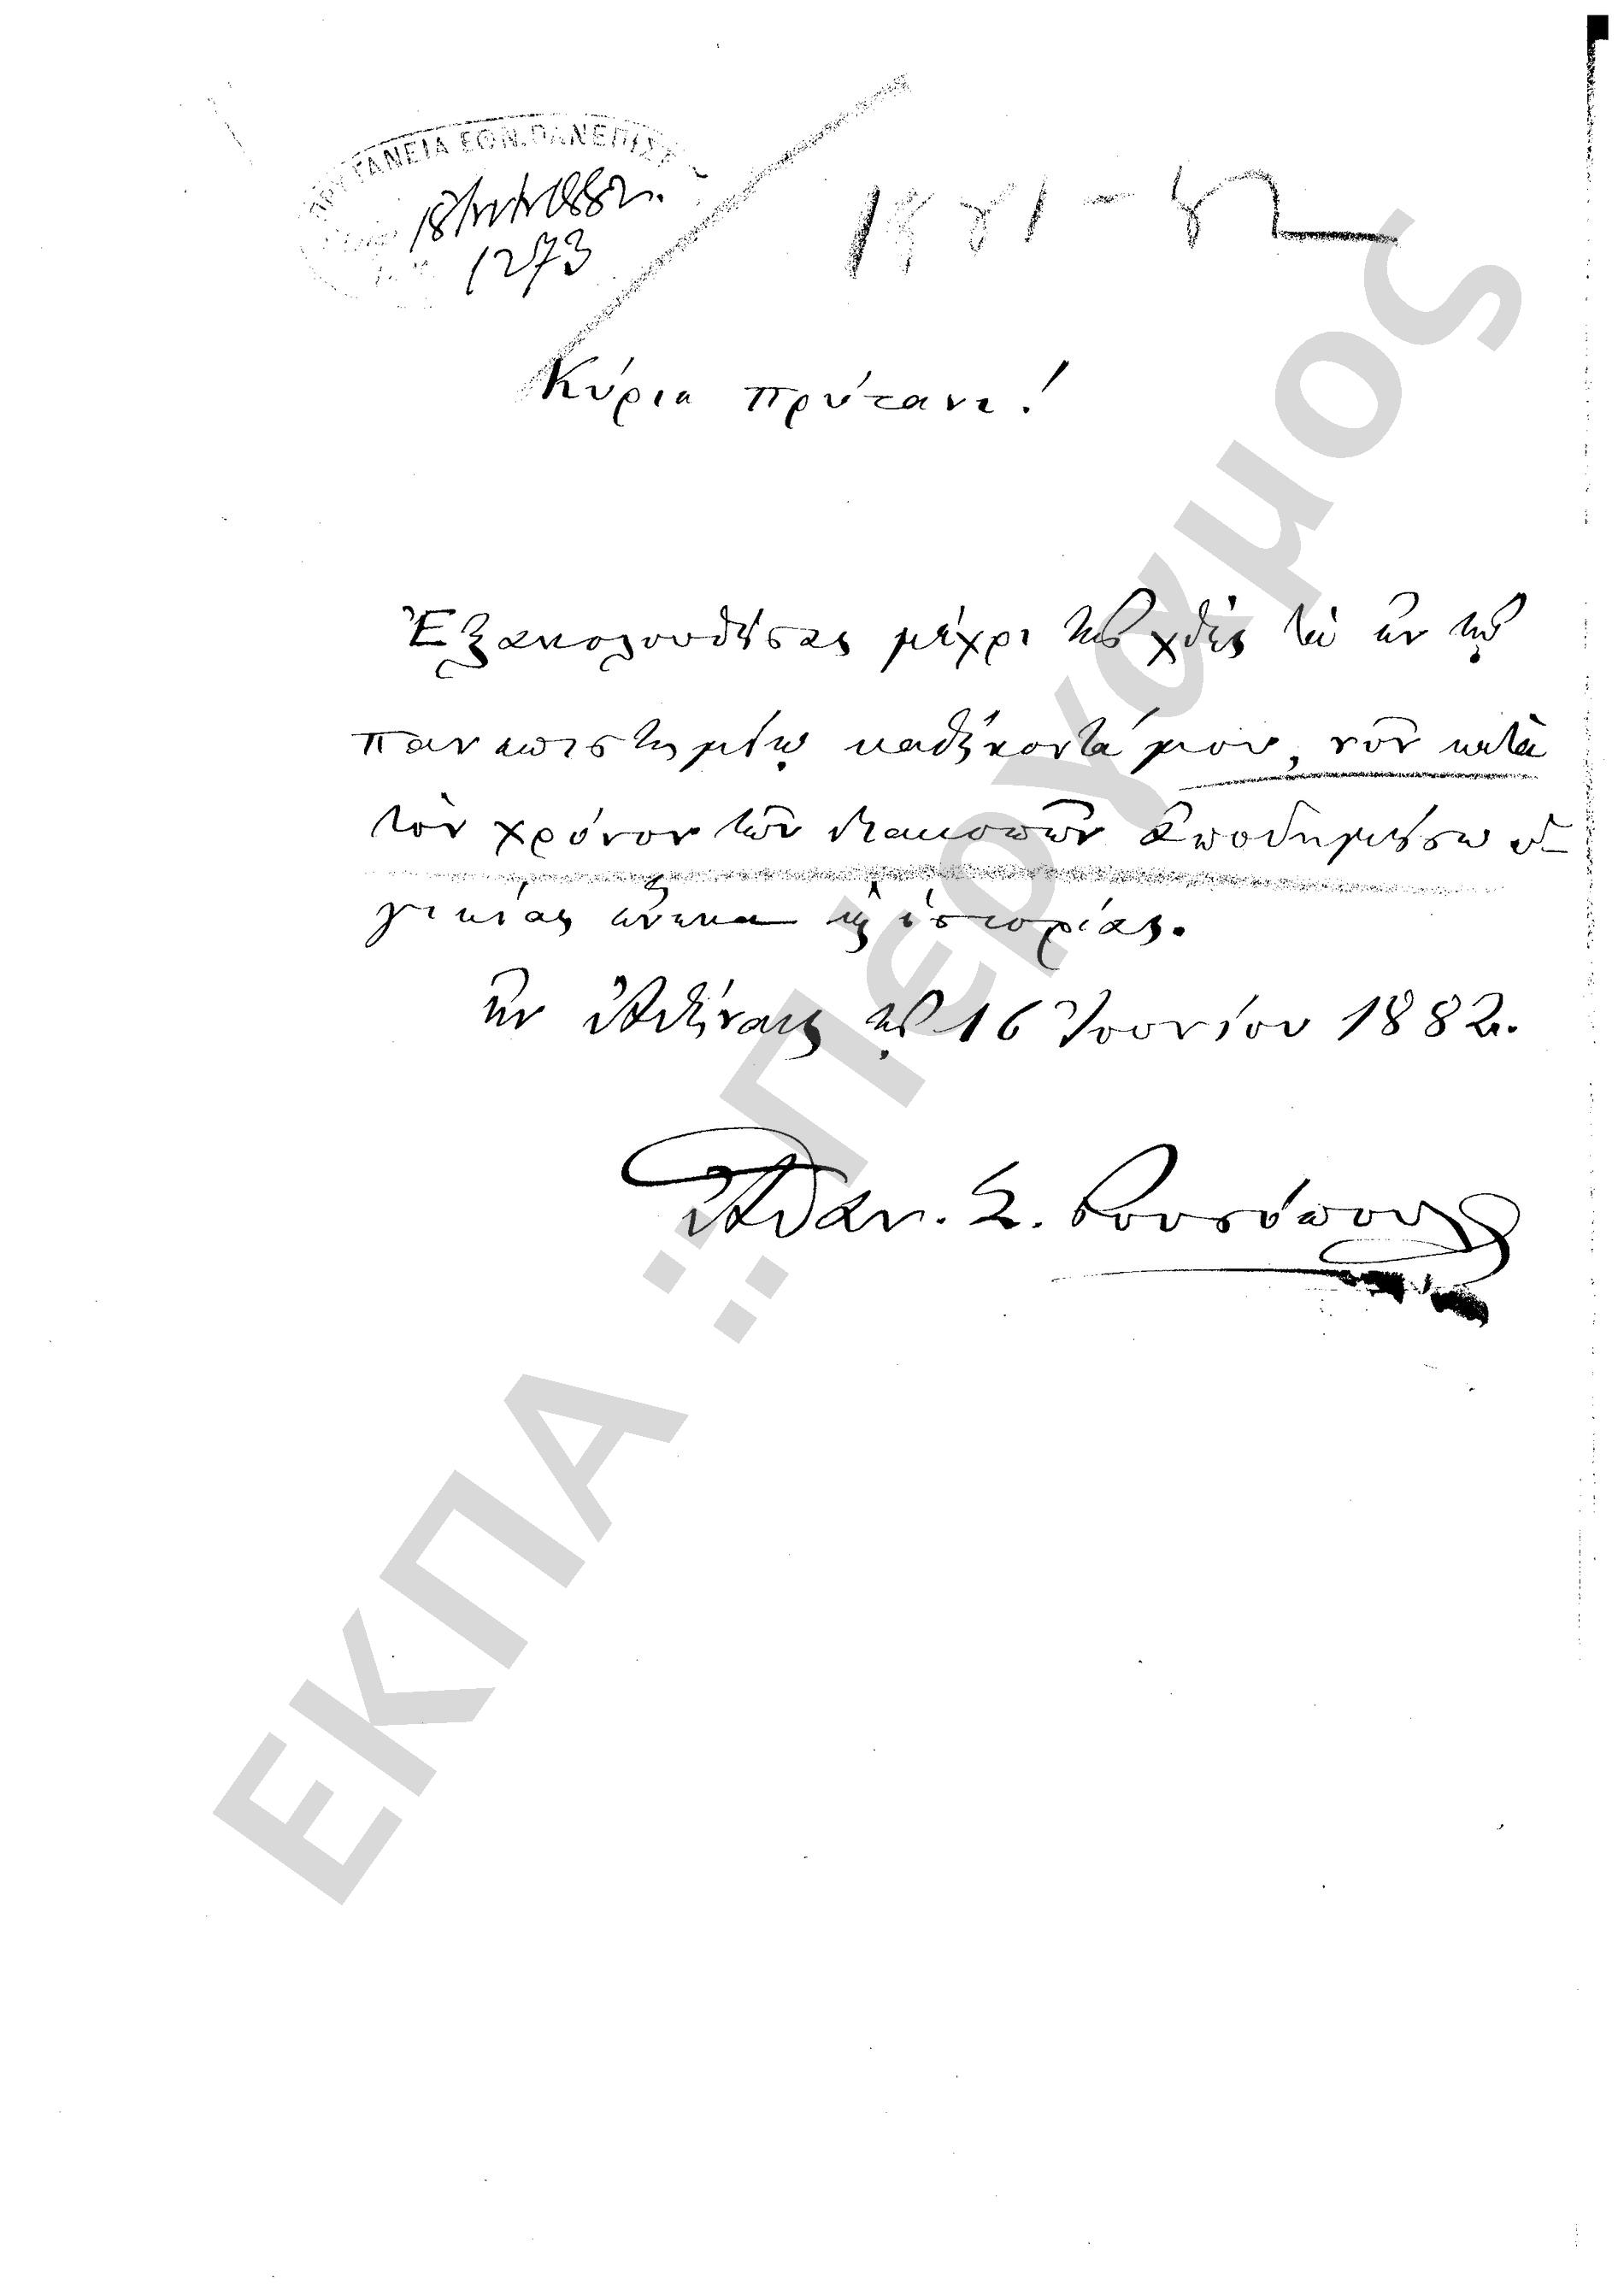 ΠΡΥΤΑΝΕΙΑ ΕΘΝ. ΠΑΝΕΠΙΣΤ
1882
1273
1881-82
Κύριε πρύτανι!
Ἐξακολουθήσας μέχρι τῆς χθὲς τὰ ἐν τῷ
πανεπιστημίῳ καθήκοντά μου, νῦν κατὰ
τὸν χρόνον τῶν διακοπῶν ἀποδημήσω ὑ-
γιείας ἕνεκα ἢ ἱστορίας.
ἐν Ἀθήναις τῇ 16 Ἰουνίου 1882.
Ἀθαν. Σ. Ρουσόπουλος
ΕΚΠΑ :: Πέργαμος